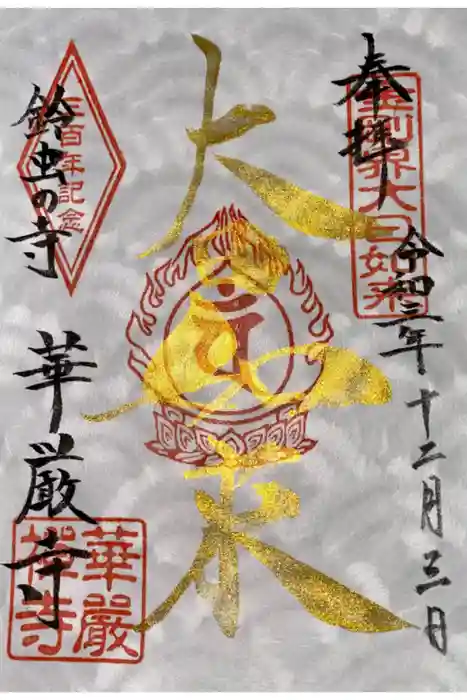 奉拝
令和三年十二月三日
金剛界大日如来
大日如来
鈴虫の寺
三百年記念
華厳寺
華嚴
禅寺